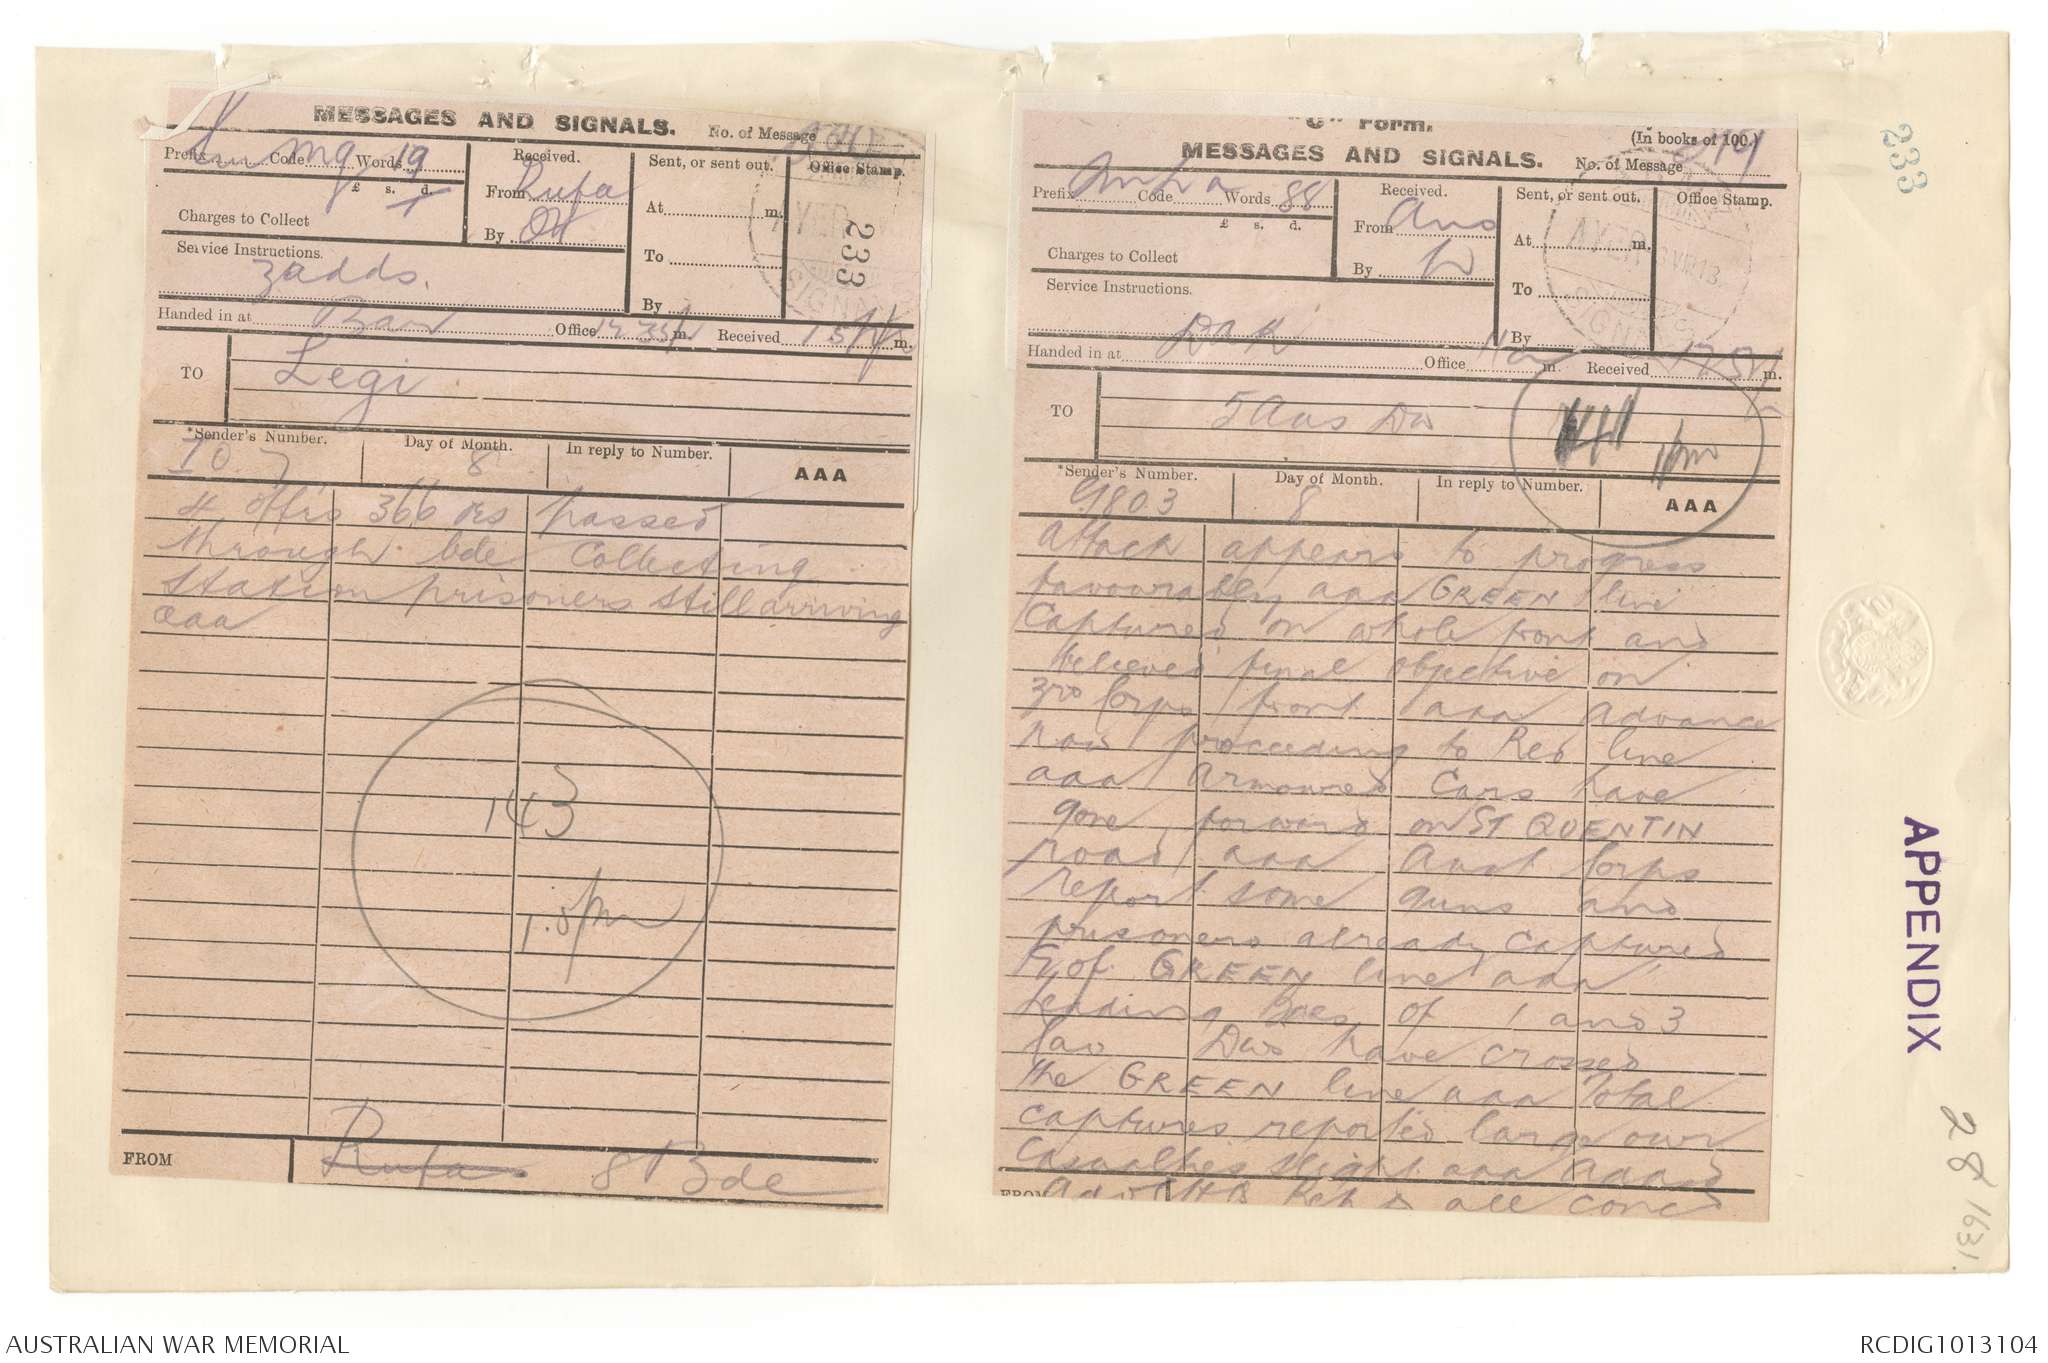 MESSAGES AND SIGNALS. No. of Message
Prefix Sm Code mq Words 19
Received.
Sent, or sent out.
Office Stamp.
£ s. d.
From Rufa
At m.
Charges to Collect
By
To
Service Instructions.
3adds.
By
233
Handed in at Office m. Received m.
TO Legi
*Sender's Number. Day of Month. In reply to Number. AAA
I 07 8
4 offrs 366 ors passed
through bde collecting
station prisoners still arriving
aaa
143
1.5pm
FROM Rufa 8 Bde
"C" Form.
(In books of 100.)
MESSAGES AND SIGNALS. No. of Message
Prefix Code Words 88
Received.
Sent, or sent out.
Office Stamp.
£ s. d.
From Aus
At m.
Charges to Collect
By
To
Service Instructions.
By
Handed in at Office m. Received m.
TO 5 Aus Div
141 1pm
*Sender's Number. Day of Month. In reply to Number. AAA
G803 8
Attack appears to progress
favourably aaa GREEN line
captured on whole front and
believed final objective on
3rd Corps front aaa Advance
now proceeding to Red line
aaa Armoured Cars have
gone forward on ST QUENTIN
road aaa Aust Corps
report some guns and
prisoners already captured
E of GREEN line aaa
Leading Bdes of 1 and 3
Cav Divs have crossed
the GREEN line aaa Total
captures reported large own
casualties slight aaa Addsd
FROM
all concd
233
APPENDIX
28
1631
AUSTRALIAN WAR MEMORIAL
RCDIG1013104